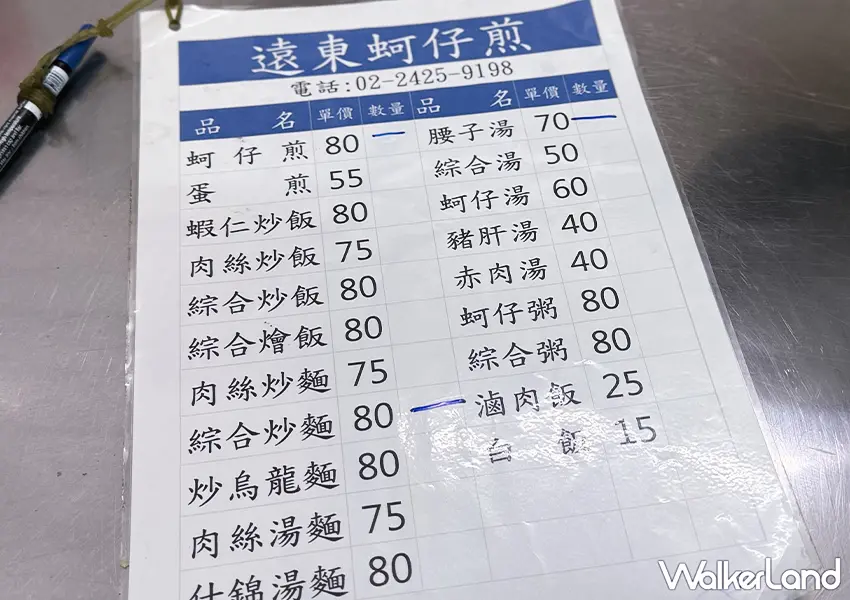 遠東蚵仔煎
電話:02-2425-9198
品名 單價 數量 品名 單價 數量
蚵仔煎 80 腰子湯 70
蛋煎 55 綜合湯 50
蝦仁炒飯 80 蚵仔湯 60
肉絲炒飯 75 豬肝湯 40
綜合炒飯 80 赤肉湯 40
綜合燴飯 80 蚵仔粥 80
肉絲炒麵 75 綜合粥 80
綜合炒麵 80 滷肉飯 25
炒烏龍麵 80 白飯 15
肉絲湯麵 75
什錦湯麵 80
WalkerLand